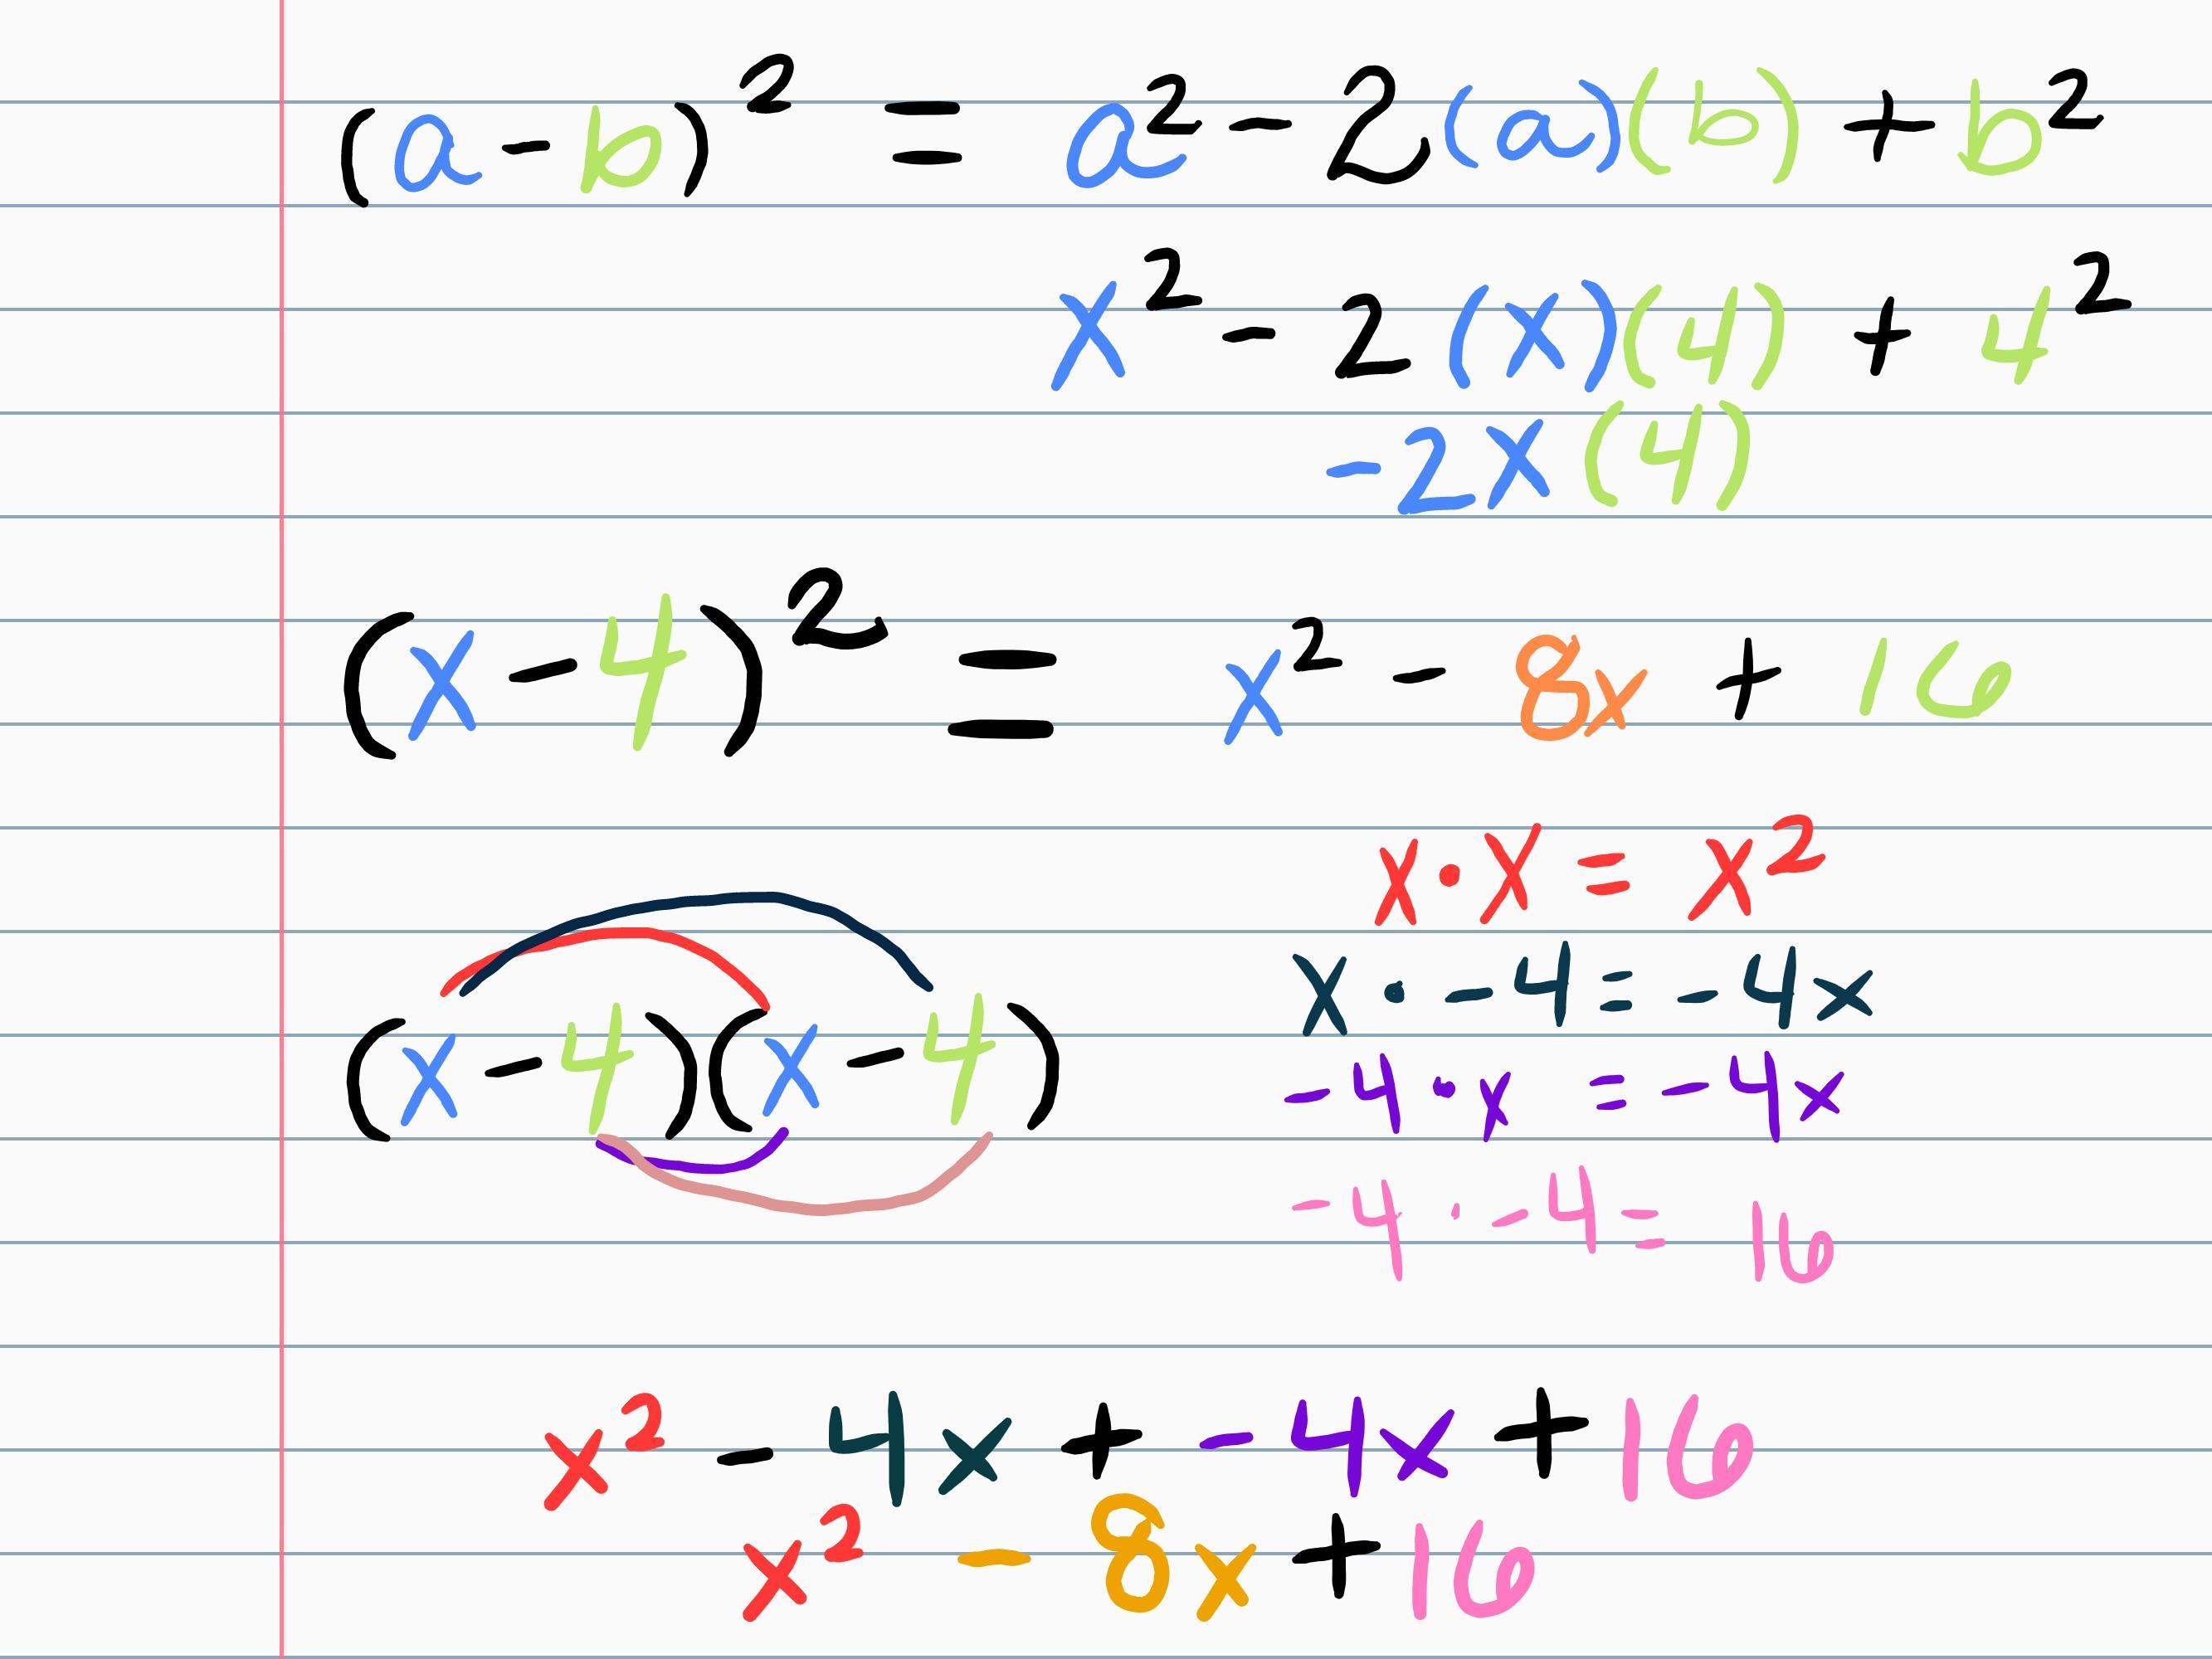 (a-b)² = a² - 2(a)(b) + b²
x² - 2(x)(4) + 4²
-2x(4)
(x-4)² = x² - 8x + 16
x·x = x²
x· -4 = -4x
(x-4)(x-4)
-4·x = -4x
-4· -4 = 16
x² - 4x + -4x + 16
x² - 8x + 16